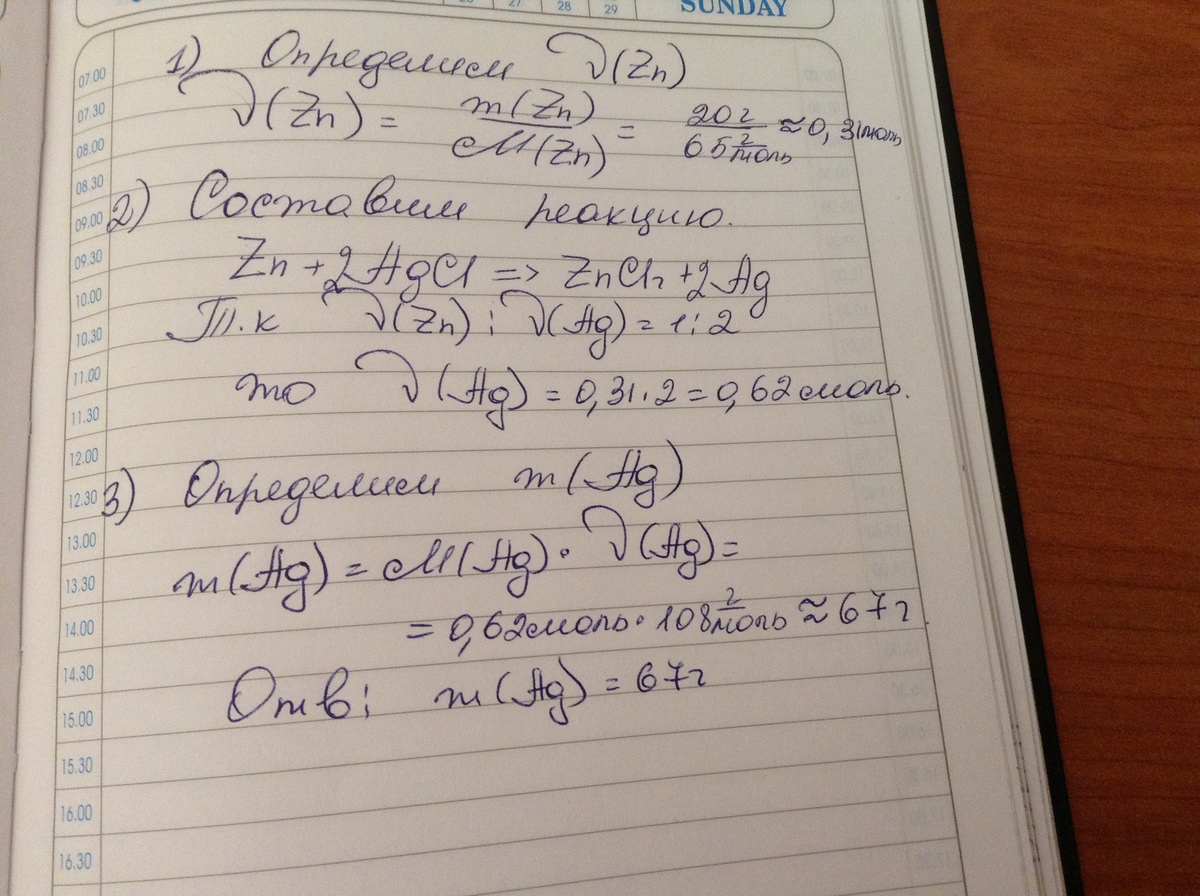 27 28 29 SUNDAY
07.00 1) Определим ν(Zn)
07.30 ν(Zn) = m(Zn)/M(Zn) = 20 г/65 г/моль ≈ 0,31моль
08.00
08.30 2) Составим реакцию.
09.00
09.30 Zn + 2AgCl => ZnCl₂ + 2Ag
10.00 Т.к ν(Zn) : ν(Ag) = 1:2
10.30
11.00 то ν(Ag) = 0,31.2 = 0,62 моль.
11.30
12.00
12.30 3) Определим m(Ag)
13.00
13.30 m(Ag) = M(Ag) · ν(Ag) =
14.00 = 0,62моль · 108 г/моль ≈ 67г
14.30
15.00 Отв: m(Ag) = 67г
15.30
16.00
16.30